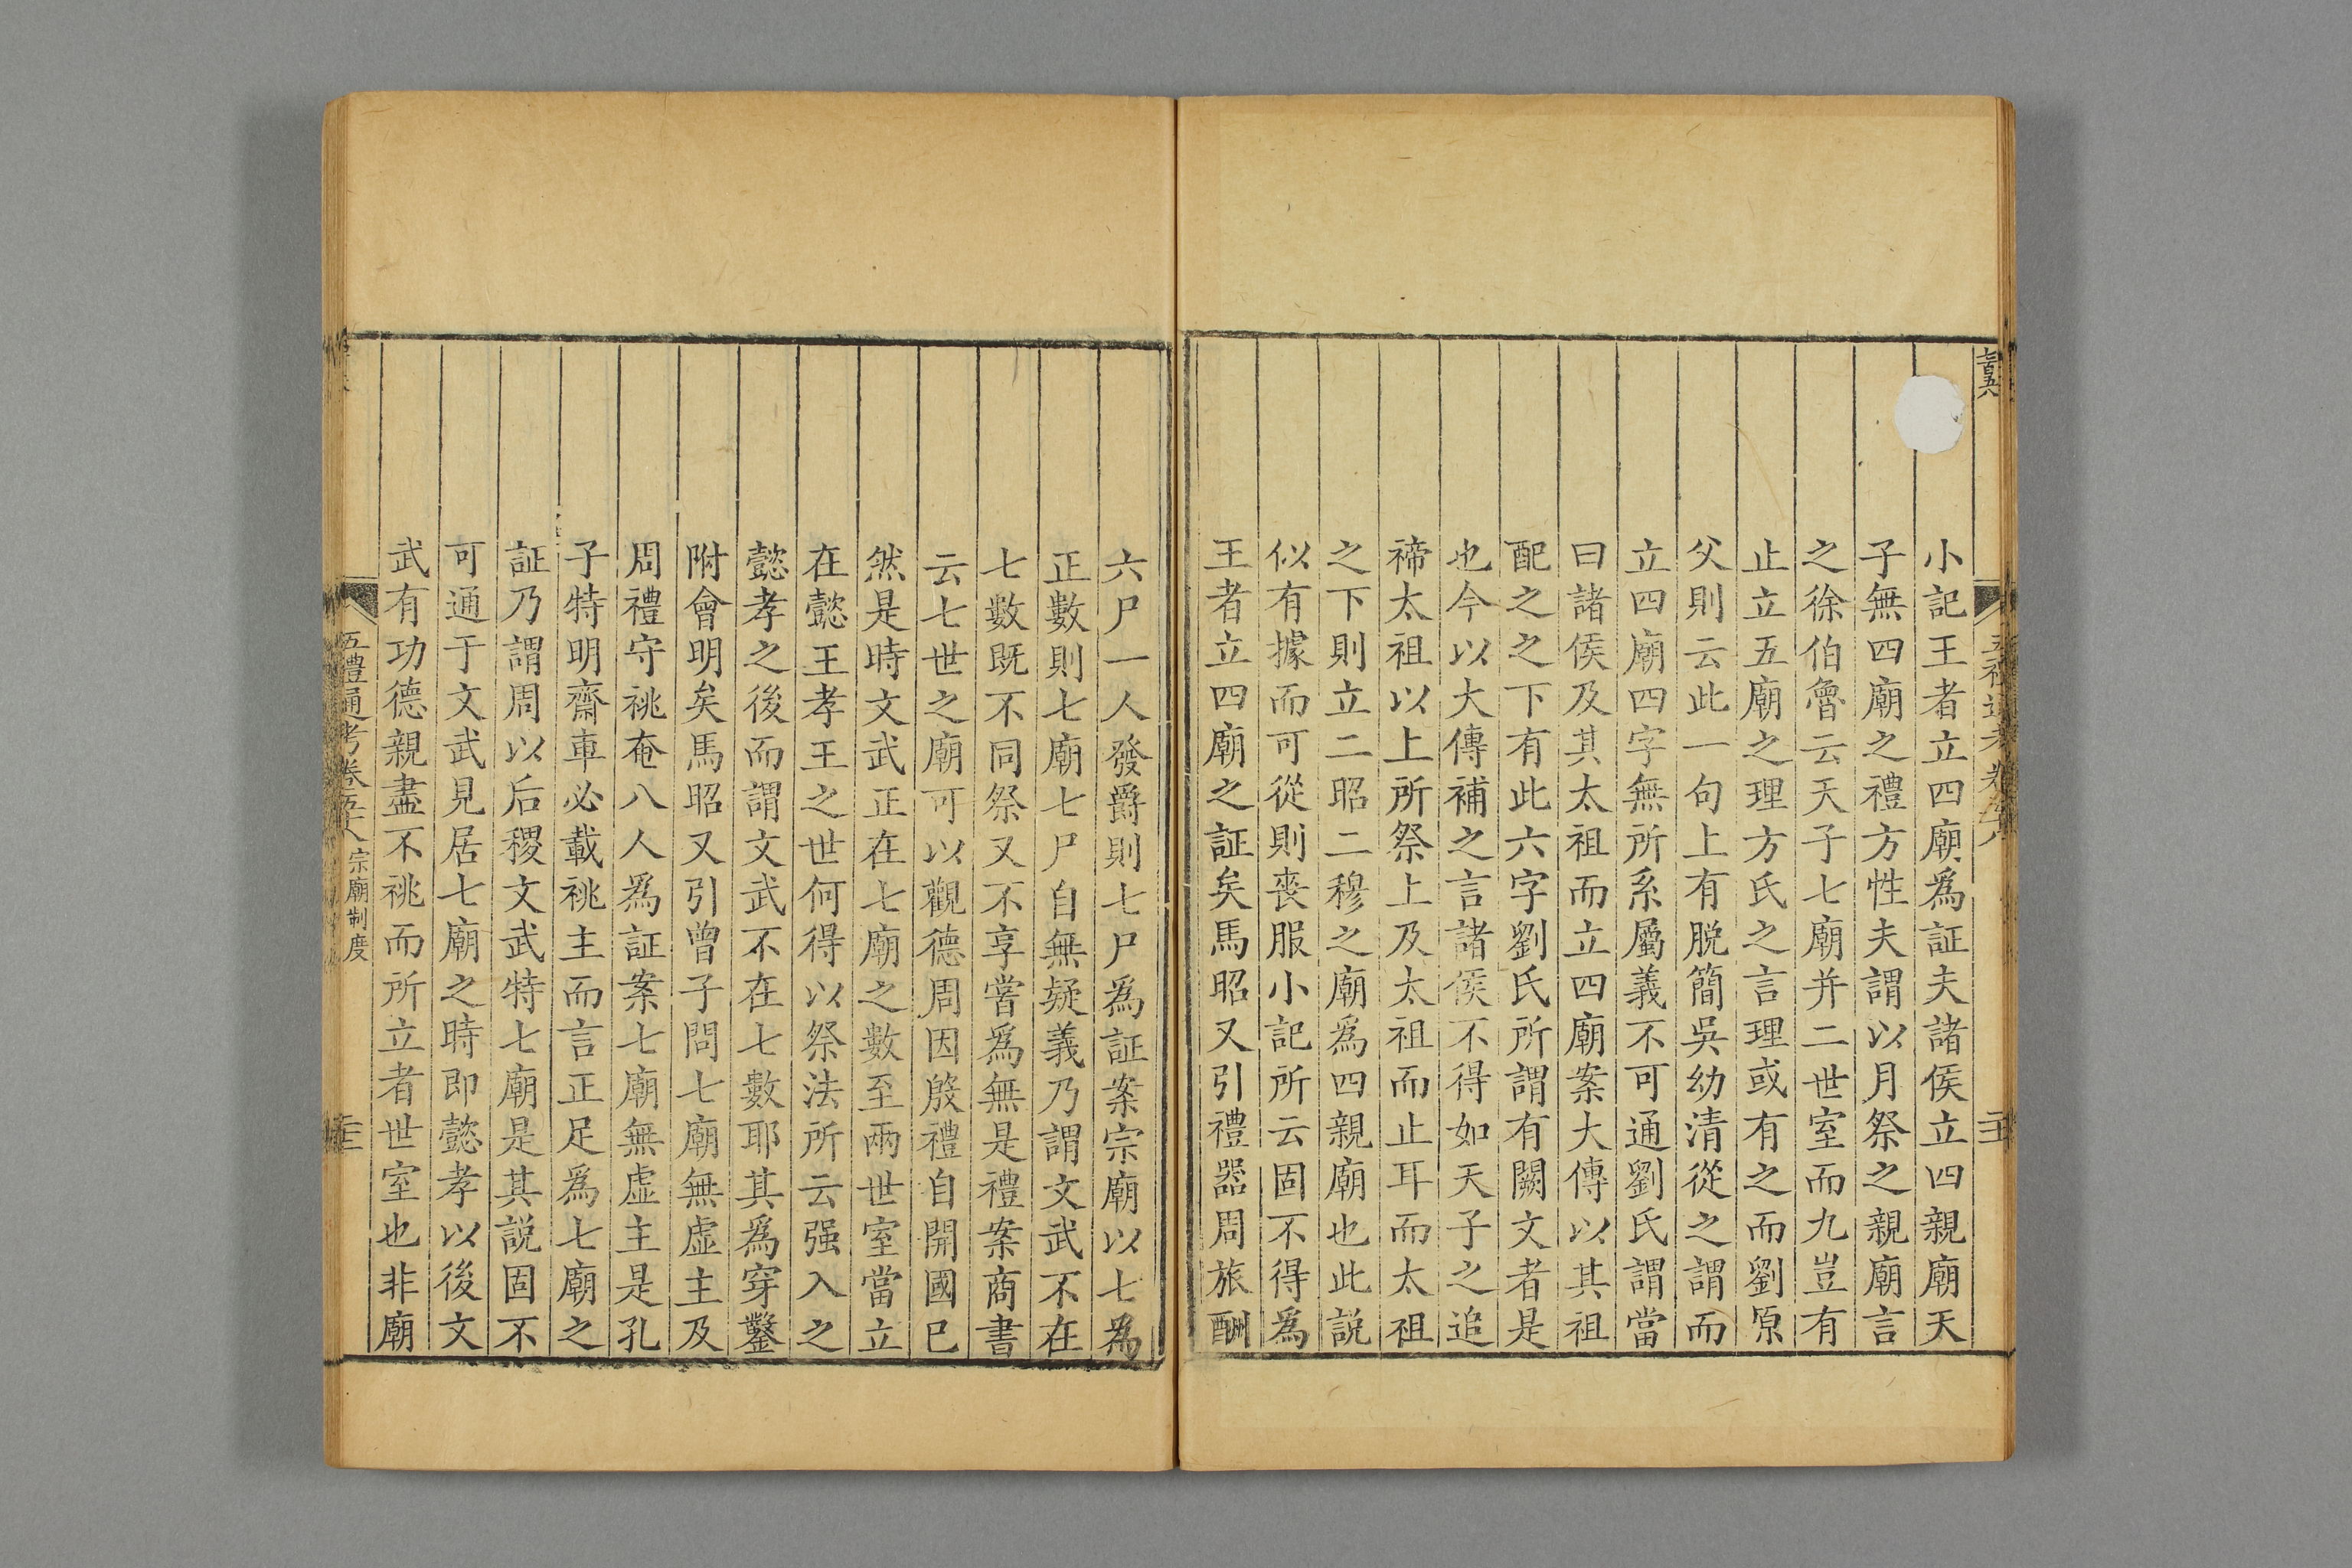 小記王者立四廟爲証夫諸侯立四親廟天
子無四廟之禮方性夫謂以月祭之親廟言
之徐伯魯云天子七廟并二世室而九豈有
止立五廟之理方氏之言理或有之而劉原
父則云此一句上有脱簡吳幼清從之謂而
立四廟四字無所系屬義不可通劉氏謂當
曰諸侯及其太祖而立四廟案大傳以其祖
配之之下有此六字劉氏所謂有闕文者是
也今以大傳補之言諸侯不得如天子之追
禘太祖以上所祭上及太祖而止耳而太祖
之下則立二昭二穆之廟爲四親廟也此説
似有據而可從則喪服小記所云固不得爲
王者立四廟之証矣馬昭又引禮器周旅酬
六尸一人發爵則七尸爲証案宗廟以七爲
正數則七廟七尸自無疑義乃謂文武不在
七數既不同祭又不享嘗爲無是禮案商書
云七世之廟可以觀德周因殷禮自開國已
然是時文武正在七廟之數至兩世室當立
在懿王孝王之世何得以祭法所云强入之
懿孝之後而謂文武不在七數耶其爲穿鑿
附會明矣馬昭又引曾子問七廟無虛主及
周禮守祧奄八人爲証案七廟無虛主是孔
子特明齋車必載祧主而言正足爲七廟之
証乃謂周以后稷文武特七廟是其説固不
可通于文武見居七廟之時即懿孝以後文
武有功德親盡不祧而所立者世室也非廟
五禮通考卷五十八 宗廟制度